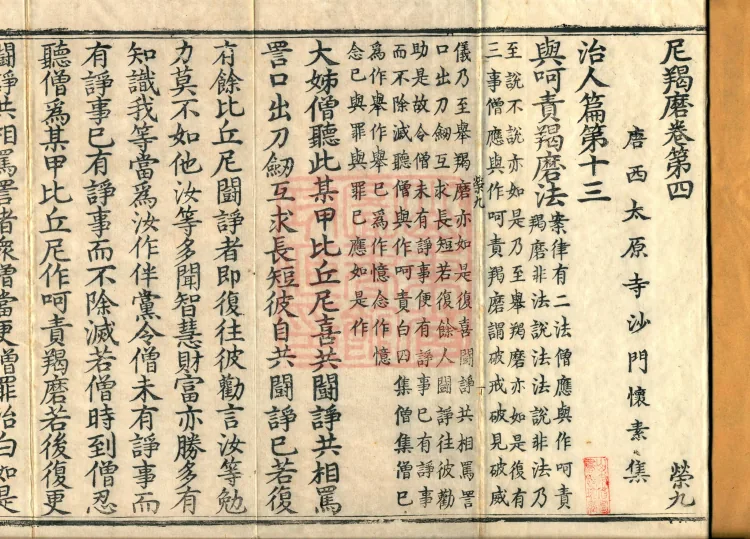 尼羯磨卷第四
榮九
唐西太原寺沙門懷素集
治人篇第十三
與呵責羯磨法
案律有二法僧應與作呵責
羯磨非法說法法說非法乃
至說不說亦如是乃至舉羯磨亦如是復有
三事僧應與作呵責羯磨謂破戒破見破威
榮九
儀乃至舉羯磨亦如是復喜鬪諍共相罵詈
口出刀劒互求長短若復餘人鬪諍往彼勸
助是故令僧未有諍事便有諍事已有諍事
而不除滅聽僧與作呵責白四集僧集僧已
為作舉作舉已為作憶念作憶
念已與罪與罪已應如是作
大姊僧聽此某甲比丘尼喜共鬪諍共相罵
詈口出刀劒互求長短彼自共鬪諍已若復
有餘比丘尼鬪諍者即復往彼勸言汝等勉
力莫不如他汝等多聞智慧財富亦勝多有
知識我等當爲汝作伴黨令僧未有諍事而
有諍事已有諍事而不除滅若僧時到僧忍
聽僧爲某甲比丘尼作呵責羯磨若後復更
鬪諍共相罵詈者衆僧當更增罪治白如是